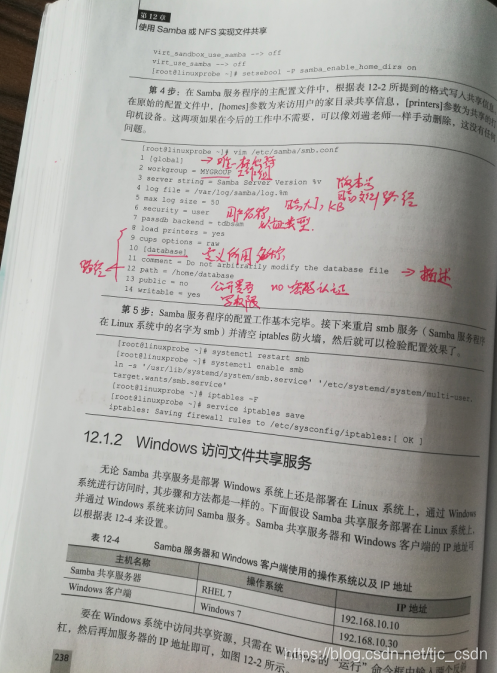 第12章
使用 Samba 或 NFS 实现文件共享
virt_sandbox_use_samba --> off
virt_use_samba --> off
[root@linuxprobe ~]# setsebool -P samba_enable_home_dirs on
第 4 步：在 Samba 服务程序的主配置文件中，根据表 12-2 所提到的格式写入共享信息。
在原始的配置文件中，[homes]参数为来访用户的家目录共享信息，[printers]参数为共享的打
印机设备。这两项如果在今后的工作中不需要，可以像刘遄老师一样手动删除，这没有任何
问题。
[root@linuxprobe ~]# vim /etc/samba/smb.conf
1 [global]
2 workgroup = MYGROUP 工作组
3 server string = Samba Server Version %v 版本号
4 log file = /var/log/samba/log.%m 路径
5 max log size = 50 KB
6 security = user
7 passdb backend = tdbsam 认证类型
8 load printers = yes
9 cups options = raw
10 [database]
11 comment = Do not arbitrarily modify the database file → 描述
12 path = /home/database
13 public = no
14 writable = yes 写权限
路径
第 5 步：Samba 服务程序的配置工作基本完毕。接下来重启 smb 服务（Samba 服务程序
在 Linux 系统中的名字为 smb）并清空 iptables 防火墙，然后就可以检验配置效果了。
[root@linuxprobe ~]# systemctl restart smb
[root@linuxprobe ~]# systemctl enable smb
ln -s '/usr/lib/systemd/system/smb.service' '/etc/systemd/system/multi-user.
target.wants/smb.service'
[root@linuxprobe ~]# iptables -F
[root@linuxprobe ~]# service iptables save
iptables: Saving firewall rules to /etc/sysconfig/iptables:[ OK ]
12.1.2 Windows 访问文件共享服务
无论 Samba 共享服务是部署 Windows 系统上还是部署在 Linux 系统上，通过 Windows
系统进行访问时，其步骤和方法都是一样的。下面假设 Samba 共享服务部署在 Linux 系统上，
并通过 Windows 系统来访问 Samba 服务。Samba 共享服务器和 Windows 客户端的 IP 地址可
以根据表 12-4 来设置。
表 12-4 Samba 服务器和 Windows 客户端使用的操作系统以及 IP 地址
主机名称 操作系统 IP 地址
Samba 共享服务器 RHEL 7 192.168.10.10
Windows 客户端 Windows 7 192.168.10.30
要在 Windows 系统中访问共享资源，只需在 Windows 的“运行”命令框中输入两个反斜
杠，然后再加服务器的 IP 地址即可，如图 12-2 所示。
238
https://blog.csdn.net/tjc_csdn